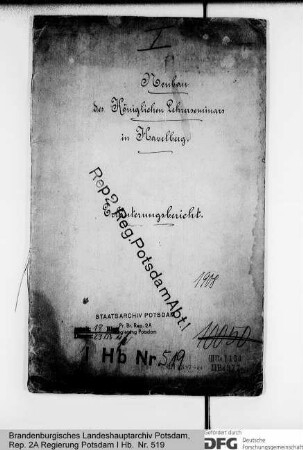 I
Neubau
des Königlichen Lehrerseminars
in Havelberg.
Rep2 Reg.Potsdam Abt.I
Erläuterungsbericht.
1908
STAATSARCHIV POTSDAM
Pr. Br. Rep. 2A
Regierung Potsdam
I Hb Nr. 519
10050
Brandenburgisches Landeshauptarchiv Potsdam,
Rep. 2A Regierung Potsdam I Hb. Nr. 519
Gefördert durch
DFG Deutsche
Forschungsgemeinschaft